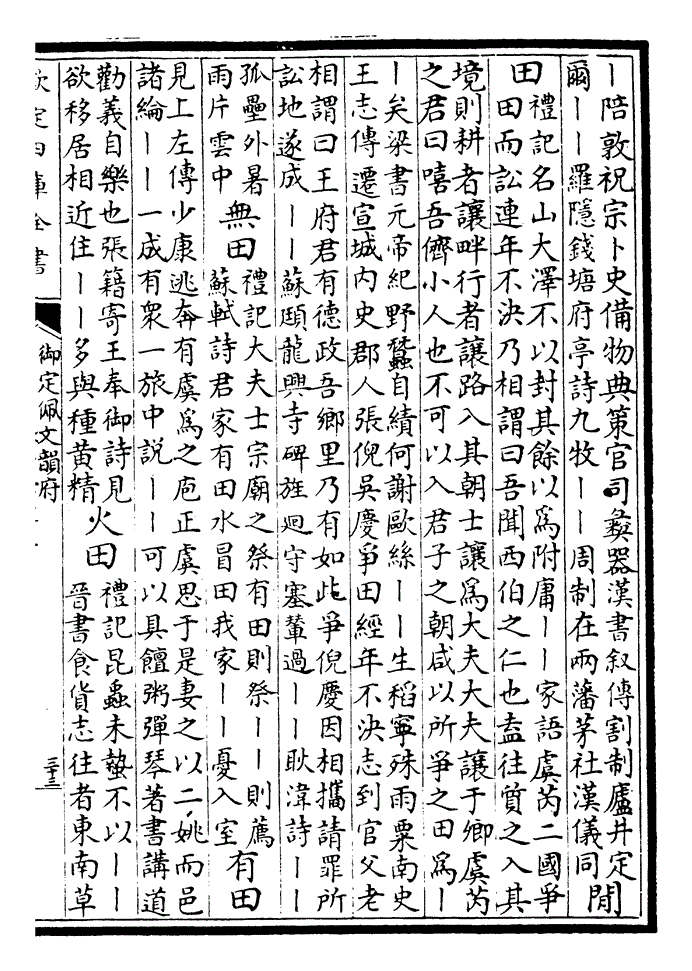 丨陪敦祝宗卜史備物典策官司彝器漢書叙傳割制廬井定
爾丨丨羅隱錢塘府亭詩九牧丨丨周制在兩藩茅社漢儀同
閒
田
禮記名山大澤不以封其餘以為附庸丨丨家語虞芮二國爭
田而訟連年不決乃相謂曰吾聞西伯之仁也盍往質之入其
境則耕者讓畔行者讓路入其朝士讓為大夫大夫讓于卿虞芮
之君曰嘻吾儕小人也不可以入君子之朝咸以所爭之田為丨
丨矣梁書元帝紀野蠶自績何謝歐絲丨丨生稻寧殊雨粟南史
王志傳遷宣城内史郡人張倪吳慶爭田經年不決志到官父老
相謂曰王府君有德政吾鄉里乃有如此爭倪慶因相攜請罪所
訟地遂成丨丨蘇頲龍興寺碑旌迴守塞輦過丨丨耿湋詩丨丨
孤壘外暑
雨片雲中
無田
禮記大夫士宗廟之祭有田則祭丨丨則薦
蘇軾詩君家有田水冒田我家丨丨憂入室
有田
見上左傳少康逃奔有虞為之庖正虞思于是妻之以二姚而邑
諸綸丨丨一成有衆一旅中說丨丨可以具饘粥彈琴著書講道
勸義自樂也張籍寄王奉御詩見
欲移居相近住丨丨多與種黄精
火田
禮記昆蟲未蟄不以丨丨
晉書食貨志往者東南草
欽定四庫全書
御定佩文韻府
三十三